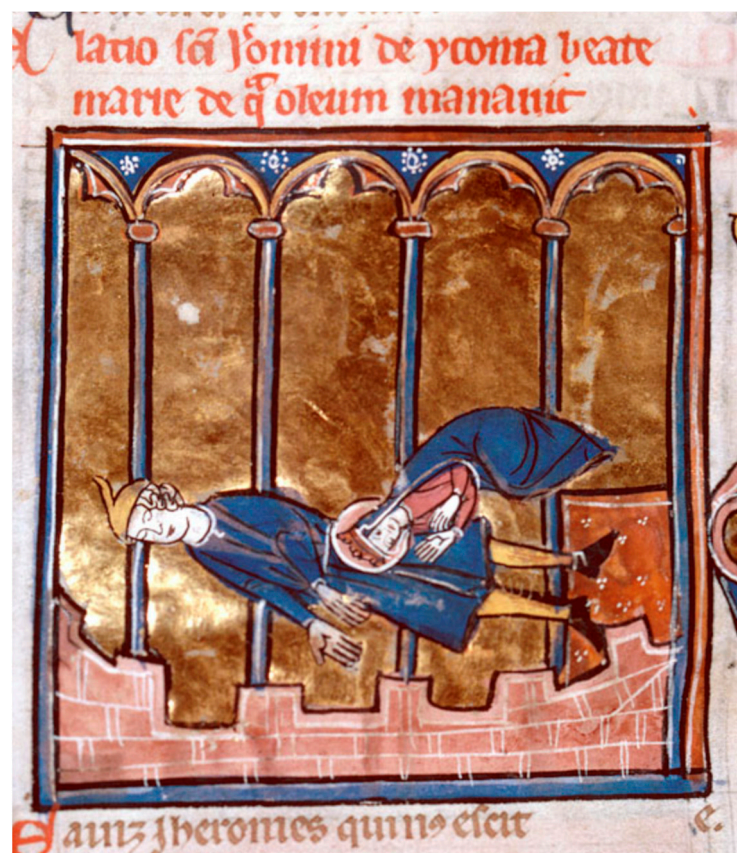 latio sci Jeronimi de yconia beate
marie de q̃ oleum manauit
ainz Jheronmes qui nꝯ escrit e.